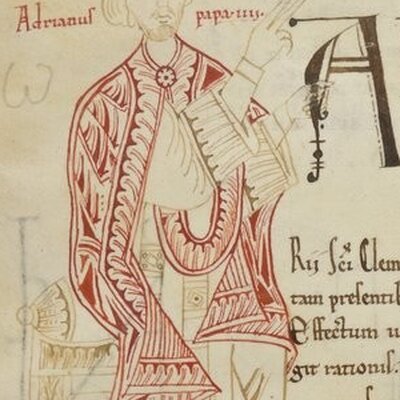 Adrianus papa·iiij·
A
Rij Sci Clem
tam presenti
Effectum u
git rationis.